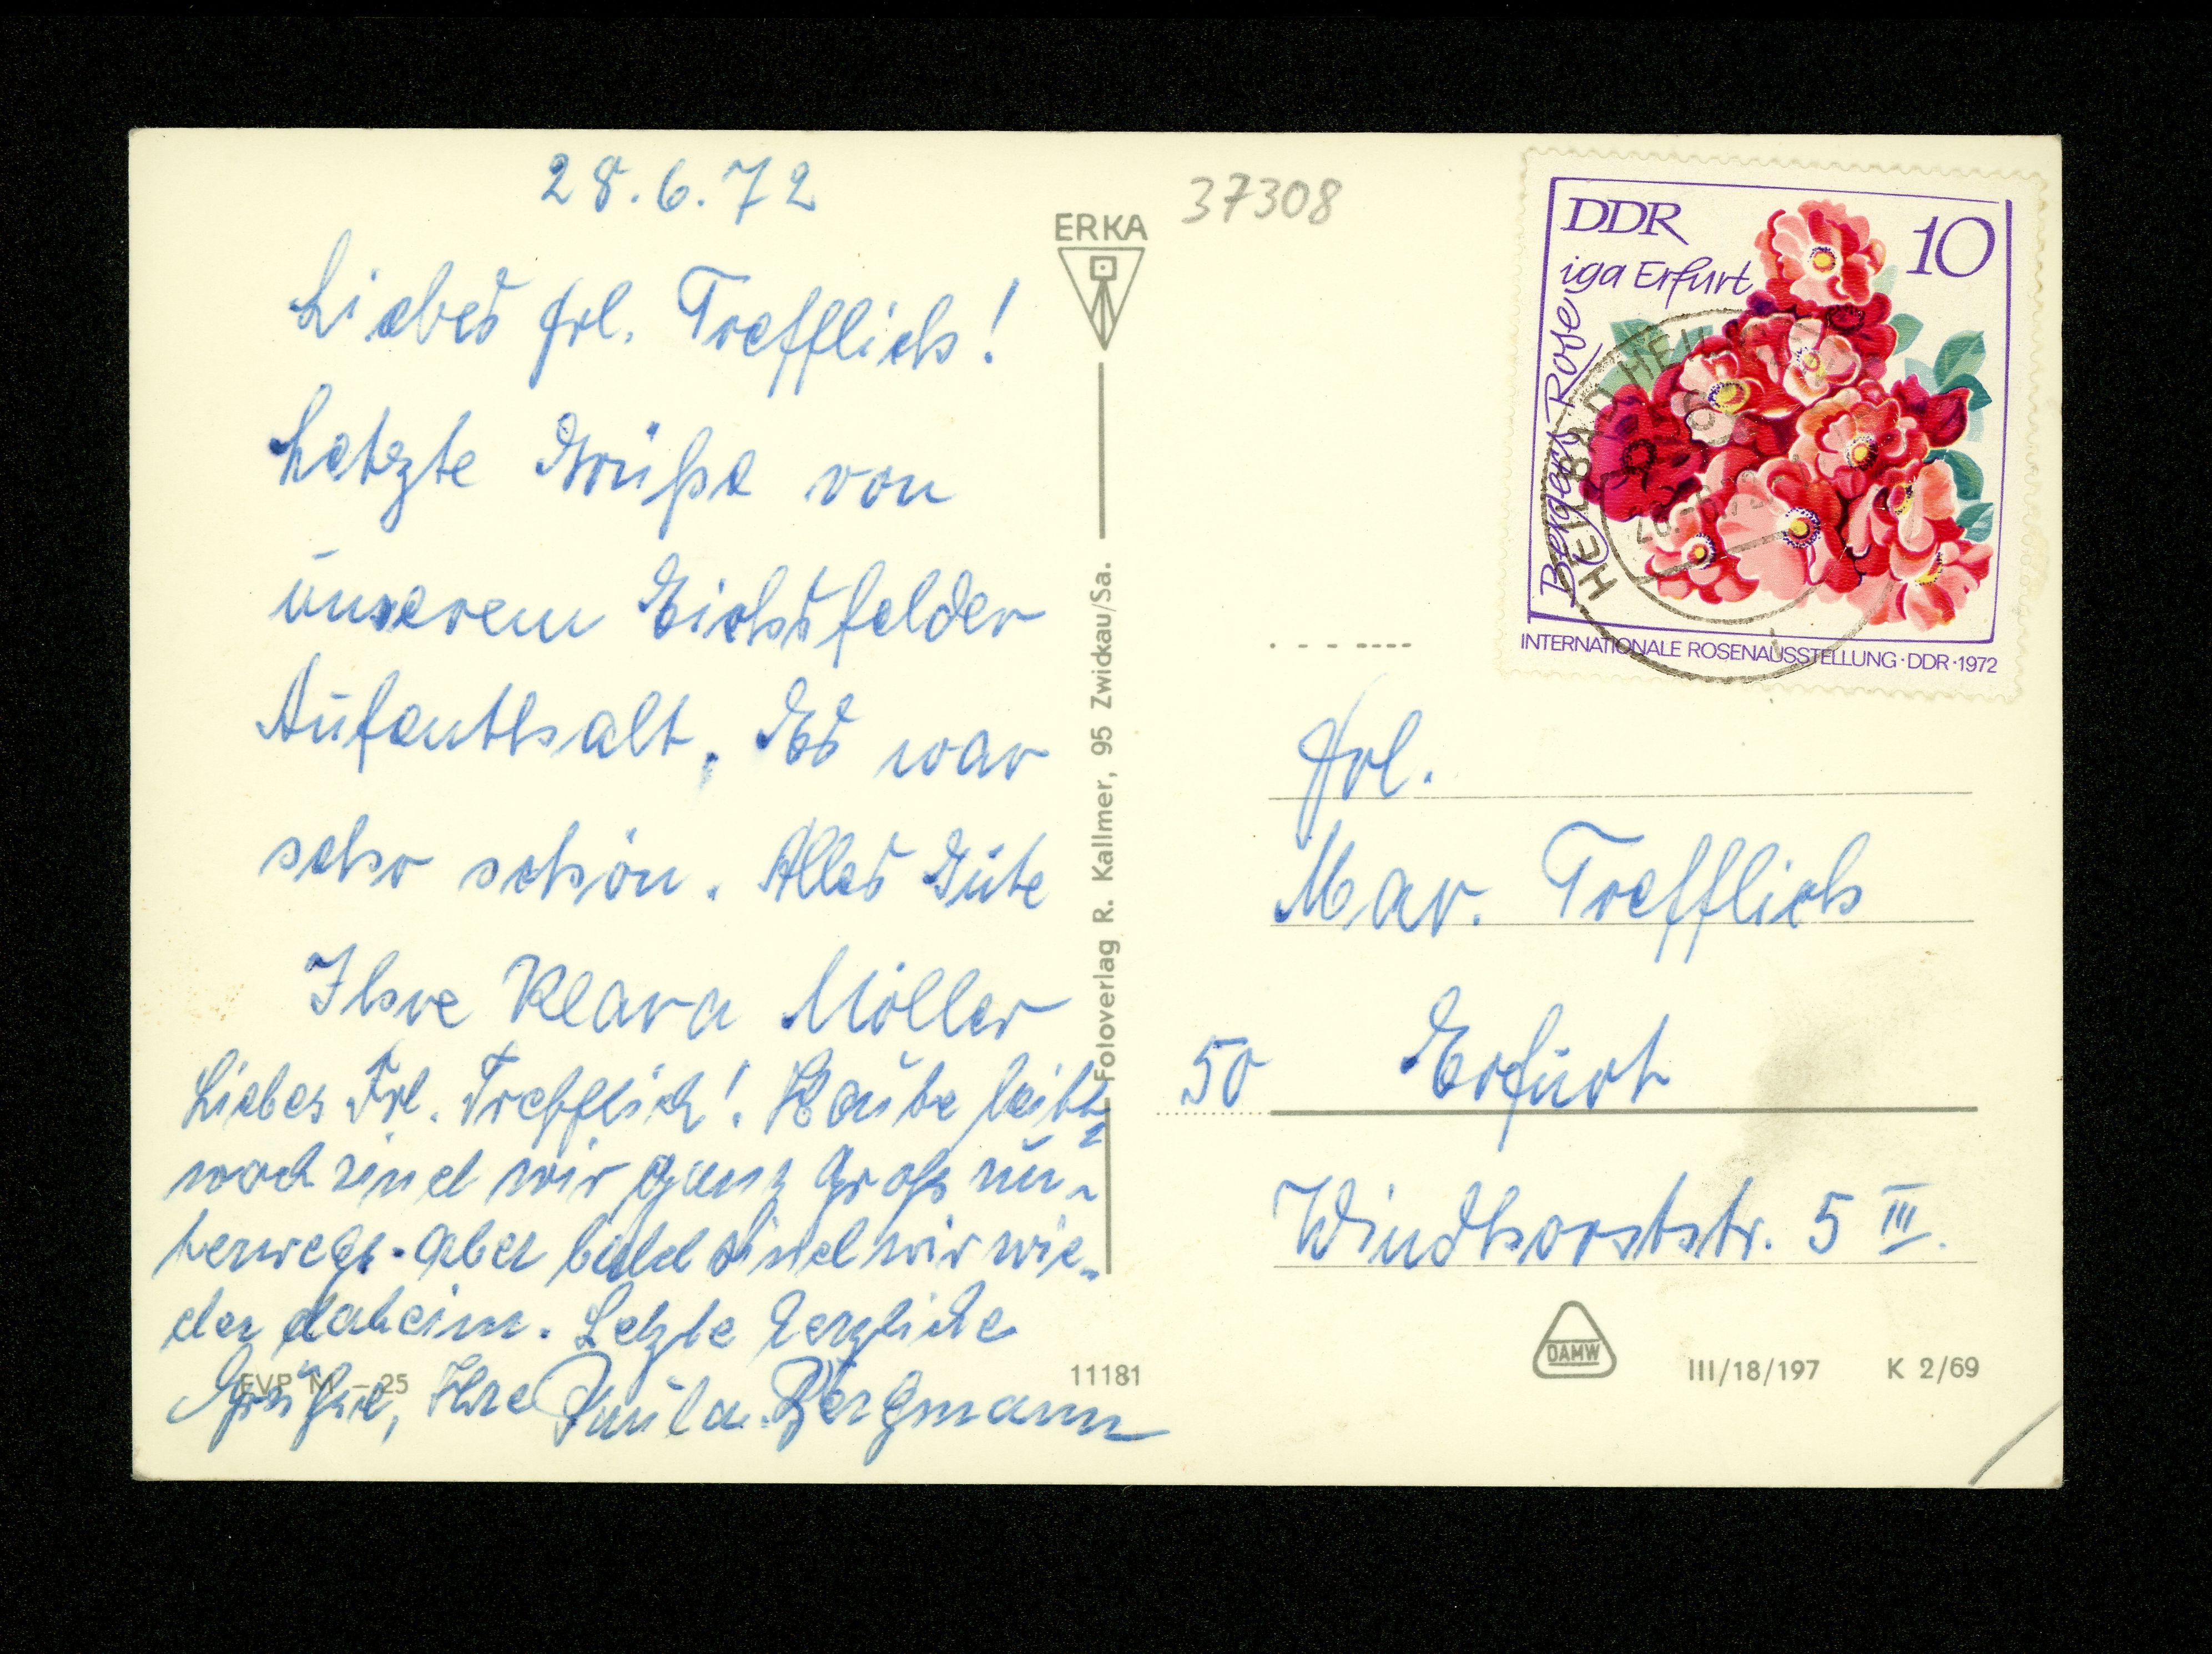 28.6.72
Liebes Frl. Trefflich!
Letzte Grüße von
unserem Eichsfelder
Aufenthalt. Es war
sehr schön. Alles Gute
Ihre Klara Möller
Liebes Frl. Trefflich! Heute
noch sind wir ganz groß un-
terwegs. Aber bald sind wir wie-
der daheim. Letzte herzliche
Grüße, Ihre Paula Bergmann
EVP M -.25
11181
ERKA
Fotoverlag R. Kallmer, 95 Zwickau/Sa.
37308
DDR
10
iga Erfurt
Bergers Rose
INTERNATIONALE ROSENAUSSTELLUNG·DDR·1972
HEILBAD HEIL
Frl.
Mar. Trefflich
50 Erfurt
Windthorststr. 5 III.
DAMW
III/18/197 K 2/69